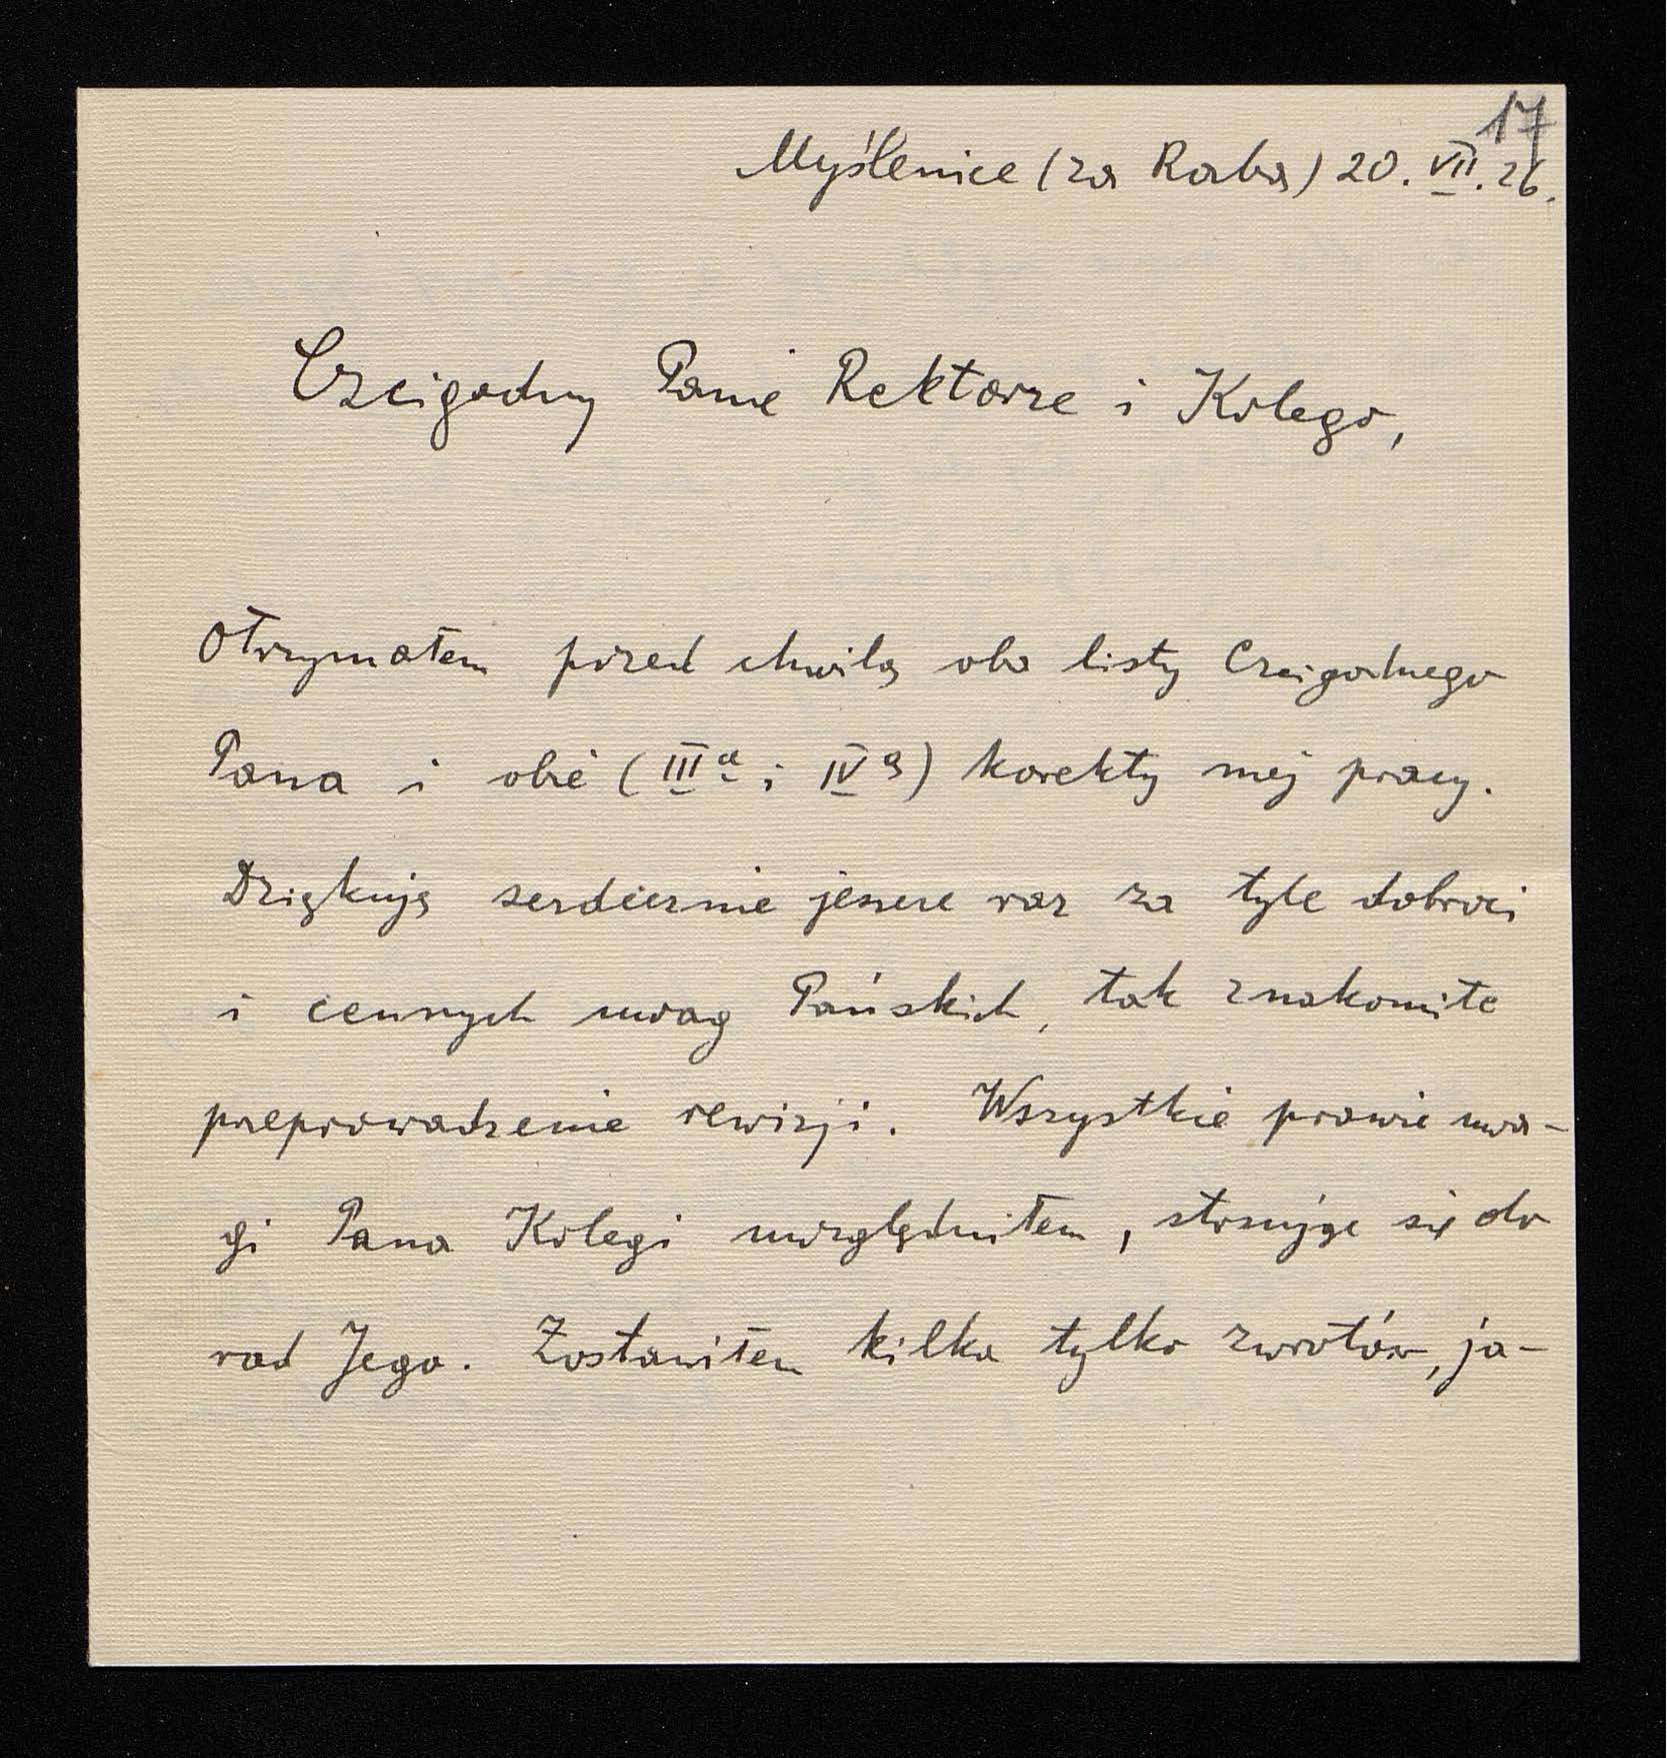 17
Myślenice (za Rabą) 20. VII. 26.
Czcigodny Panie Rektorze i Kolego,
Otrzymałem przed chwilą oba listy Czcigodnego
Pana i obie (IIIą i IVą) korekty mej pracy.
Dziękuję serdecznie jeszcze raz za tyle dobroci
i cennych uwag Pańskich, tak znakomite
przeprowadzenie rewizji. Wszystkie prawie uwa-
gi Pana Kolegi uwzględniłem, stosując się do
rad Jego. Zostawiłem kilka tylko zwrotów, ja-